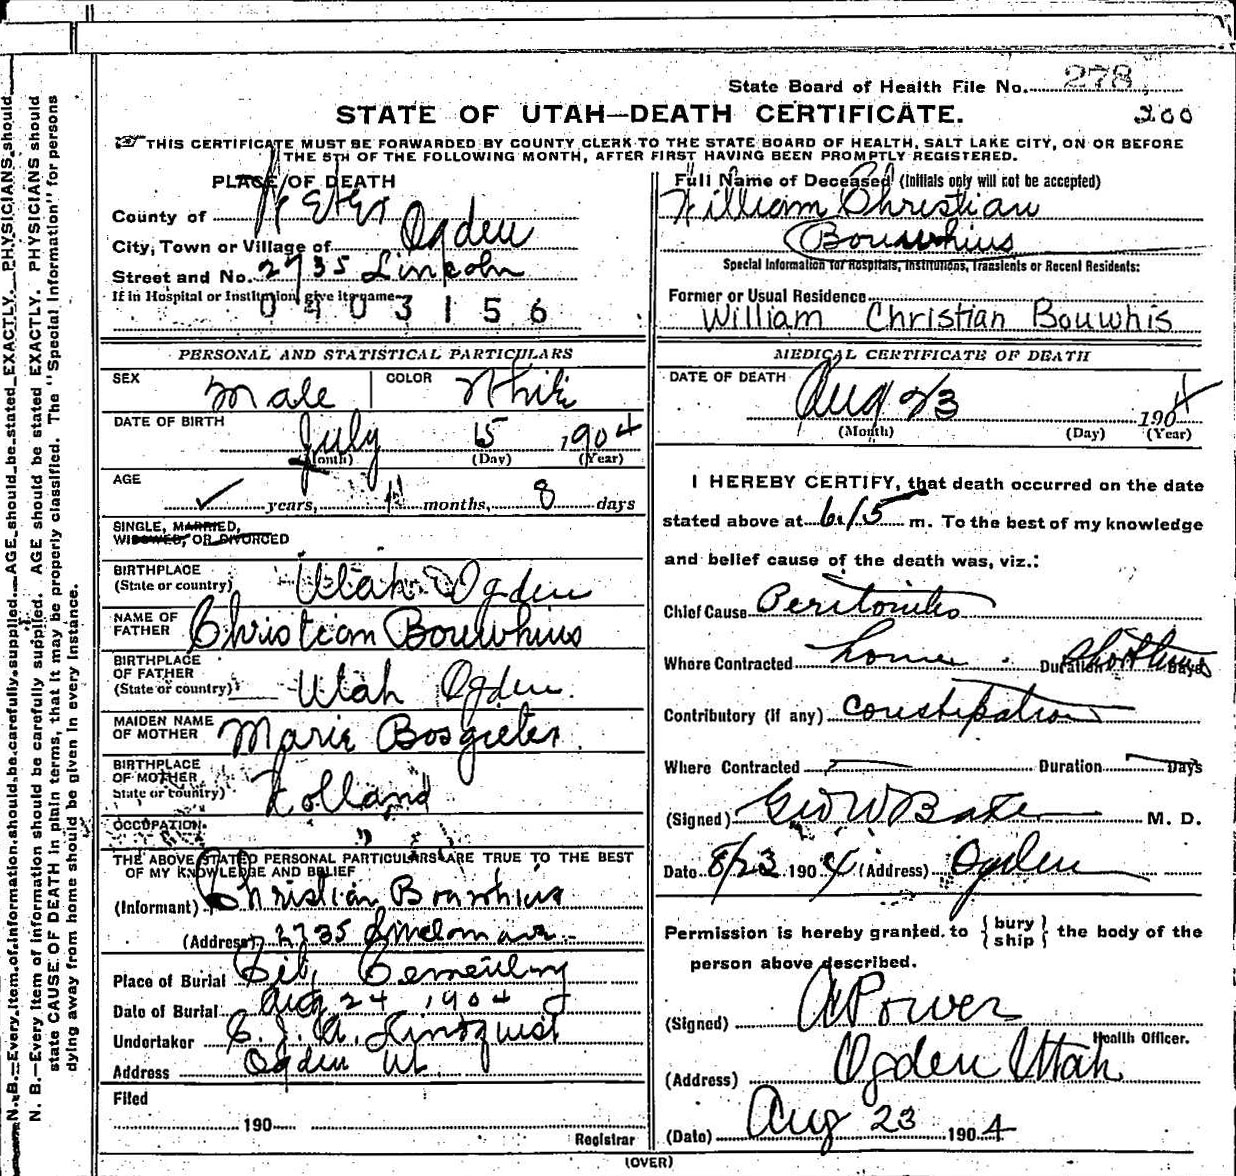 State Board of Health File No. 278
200
STATE OF UTAH—DEATH CERTIFICATE.
THIS CERTIFICATE MUST BE FORWARDED BY COUNTY CLERK TO THE STATE BOARD OF HEALTH, SALT LAKE CITY, ON OR BEFORE
THE 5TH OF THE FOLLOWING MONTH, AFTER FIRST HAVING BEEN PROMPTLY REGISTERED.
PLACE OF DEATH
County of Weber
City, Town or Village of Ogden
Street and No. 2735 Lincoln
If in Hospital or Institution, give its name
0403156
Full Name of Deceased (Initials only will not be accepted)
William Christian
Bouwhuis
Special Information for Hospitals, Institutions, Transients or Recent Residents:
Former or Usual Residence
William Christian Bouwhis
PERSONAL AND STATISTICAL PARTICULARS
SEX Male COLOR White
DATE OF BIRTH July 15 1904
(Month) (Day) (Year)
AGE
years, 1 months, 8 days
SINGLE, MARRIED,
WIDOWED, OR DIVORCED
BIRTHPLACE
(State or country) Utah Ogden
NAME OF
FATHER Christian Bouwhuis
BIRTHPLACE
OF FATHER
(State or country) Utah Ogden.
MAIDEN NAME
OF MOTHER Marie Bosgieter.
BIRTHPLACE
OF MOTHER
State or country) Holland
OCCUPATION
THE ABOVE STATED PERSONAL PARTICULARS ARE TRUE TO THE BEST
OF MY KNOWLEDGE AND BELIEF
(Informant) Christian Bouwhuis
(Address) 2735
Place of Burial City Cemetery
Date of Burial Aug 24 1904
Undertaker C. J. A. Lindquist
Address Ogden Ut.
Filed
190
Registrar
MEDICAL CERTIFICATE OF DEATH
DATE OF DEATH Aug 23 1904
(Month) (Day) (Year)
I HEREBY CERTIFY, that death occurred on the date
stated above at 6.15 m. To the best of my knowledge
and belief cause of the death was, viz.:
Chief Cause Peritonitis
Where Contracted home Duration Short time Days
Contributory (if any) Constipation
Where Contracted Duration Days
(Signed) Geo W Baker M. D.
Date 8/23 1904 (Address) Ogden
Permission is hereby granted to {bury
ship} the body of the
person above described.
(Signed) A Power
Health Officer.
(Address) Ogden Utah
(Date) Aug 23 1904
(OVER)
N. B.—Every item of information should be carefully supplied. AGE should be stated EXACTLY. PHYSICIANS should
N. B.—Every item of information should be carefully supplied. AGE should be stated EXACTLY. PHYSICIANS should
state CAUSE OF DEATH in plain terms, that it may be properly classified. The "Special Information" for persons
dying away from home should be given in every instance.